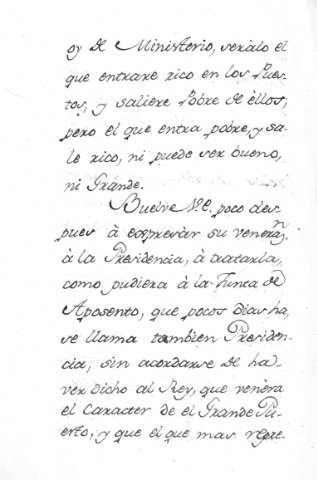 oy de Ministerio, serialo el
que entrare rico en los Pues-
tos, y saliere Pobre de ellos,
pero el que entra pobre, y sa-
le rico, ni puede ser bueno,
ni Grande.
Buelve V.E. poco des
pues à expresar su veneraⁿ.
à la Presidencia, à tratarla,
como pudiera à la Junta de
Aposento, que pocos dias ha,
se llama tambien Presiden-
cia, sin acordarse de ha-
ver dicho al Rey, que venera
el Caracter de el Grande Pu-
erto, y que el que mas repre-